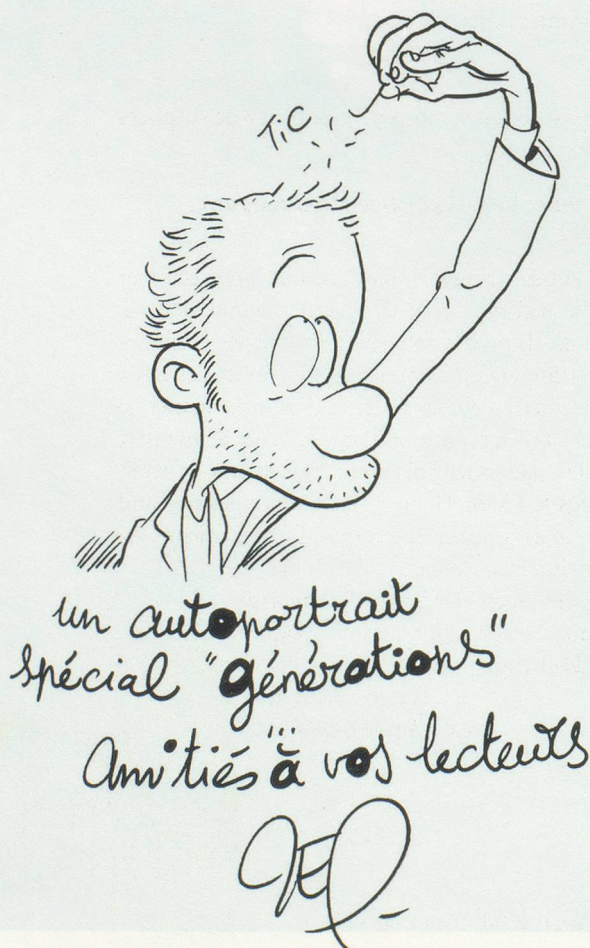 TiC
un autoportrait
spécial "générations"
Amitiés à vos lecteurs